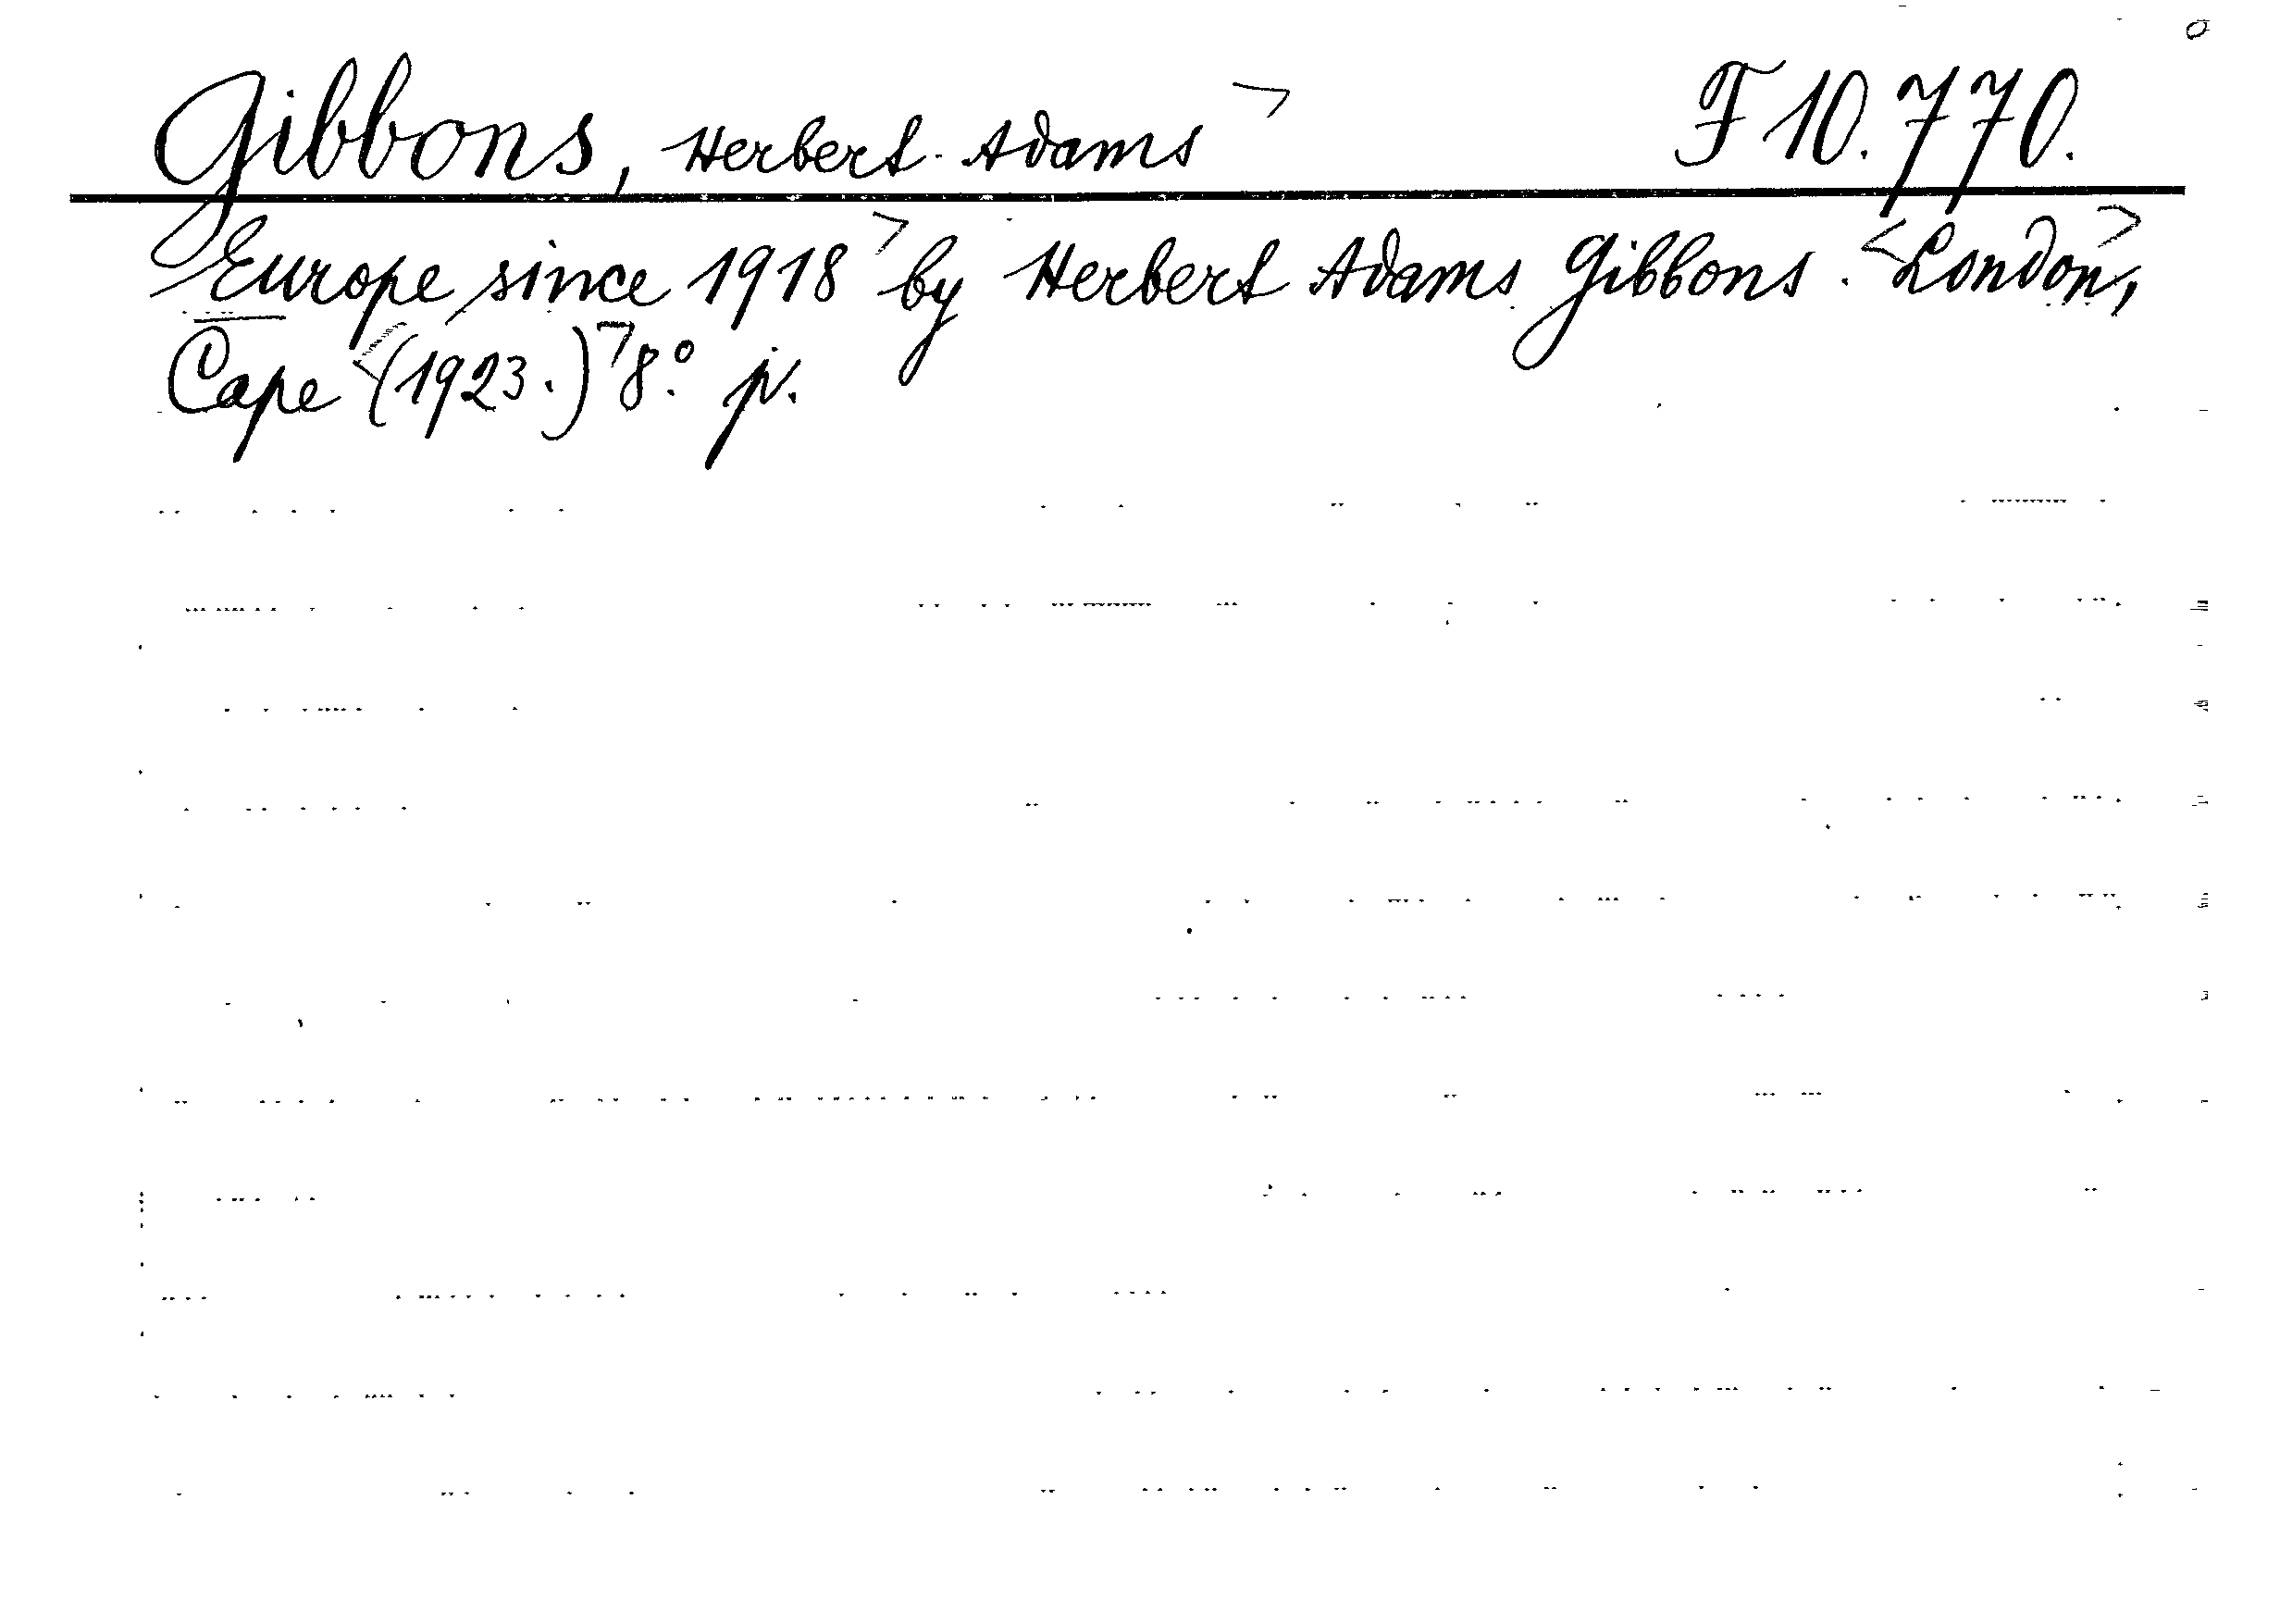 Gibbons, Herbert Adams F 10.770.
Europe since 1918 by Herbert Adams Gibbons. <London>,
Cape (1923.) 8.° p.